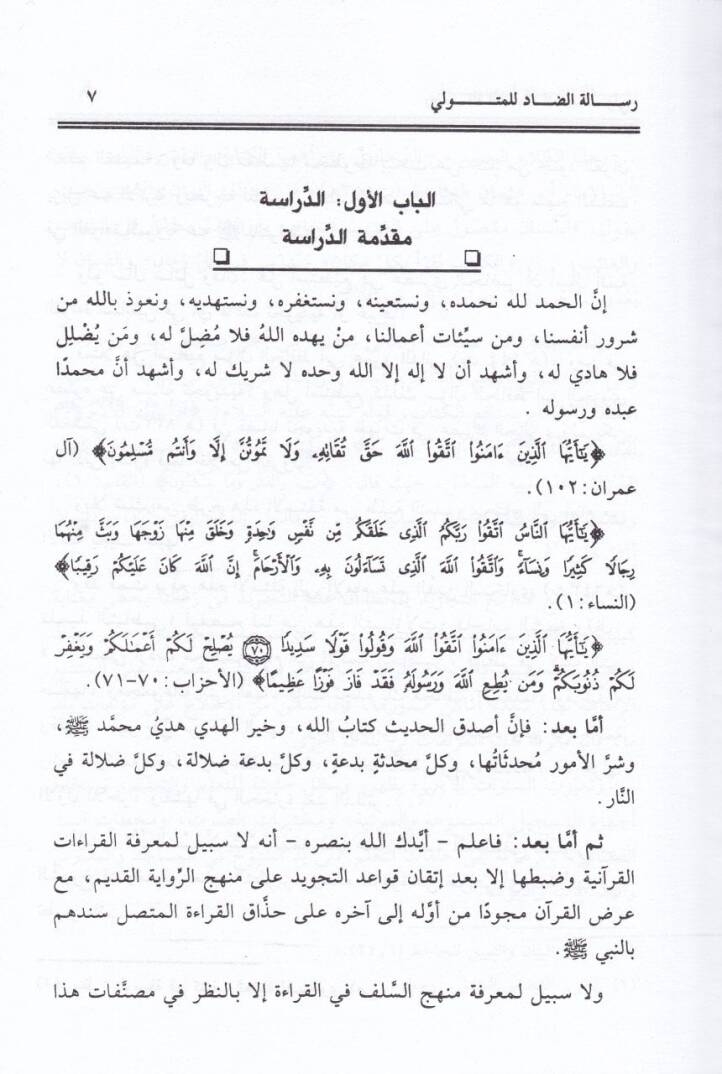 رسـالة الضـاد للمتـولي ٧
الباب الأول: الدِّراسة
مقدِّمة الدِّراسة
إنَّ الحمد لله نحمده، ونستعينه، ونستغفره، ونستهديه، ونعوذ بالله من
شرور أنفسنا، ومن سيِّئات أعمالنا، منْ يهده اللهُ فلا مُضِلَّ له، ومَن يُضْلِل
فلا هادي له، وأشهد أن لا إله إلا الله وحده لا شريك له، وأشهد أنَّ محمدًا
عبده ورسوله .
﴿يَـٰٓأَيُّهَا ٱلَّذِينَ ءَامَنُوا۟ ٱتَّقُوا۟ ٱللَّهَ حَقَّ تُقَاتِهِۦ وَلَا تَمُوتُنَّ إِلَّا وَأَنتُم مُّسْلِمُونَ﴾ (آل
عمران:١٠٢).
﴿يَـٰٓأَيُّهَا ٱلنَّاسُ ٱتَّقُوا۟ رَبَّكُمُ ٱلَّذِى خَلَقَكُم مِّن نَّفْسٍ وَٰحِدَةٍ وَخَلَقَ مِنْهَا زَوْجَهَا وَبَثَّ مِنْهُمَا
رِجَالًا كَثِيرًا وَنِسَآءً ۚ وَٱتَّقُوا۟ ٱللَّهَ ٱلَّذِى تَسَآءَلُونَ بِهِۦ وَٱلْأَرْحَامَ ۚ إِنَّ ٱللَّهَ كَانَ عَلَيْكُمْ رَقِيبًا﴾
(النساء:١).
﴿يَـٰٓأَيُّهَا ٱلَّذِينَ ءَامَنُوا۟ ٱتَّقُوا۟ ٱللَّهَ وَقُولُوا۟ قَوْلًا سَدِيدًا ٧٠ يُصْلِحْ لَكُمْ أَعْمَـٰلَكُمْ وَيَغْفِرْ
لَكُمْ ذُنُوبَكُمْ ۗ وَمَن يُطِعِ ٱللَّهَ وَرَسُولَهُۥ فَقَدْ فَازَ فَوْزًا عَظِيمًا﴾ (الأحزاب:٧٠-٧١).
أمَّا بعد: فإنَّ أصدق الحديث كتابُ الله، وخير الهدي هديُ محمَّد ﷺ،
وشرَّ الأمور مُحدثَاتُها، وكلَّ محدثةٍ بدعةٍ، وكلَّ بدعة ضلالة، وكلَّ ضلالة في
النَّار.
ثم أمَّا بعد: فاعلم – أيَّدك الله بنصره – أنه لا سبيل لمعرفة القراءات
القرآنية وضبطها إلا بعد إتقان قواعد التجويد على منهج الرِّواية القديم، مع
عرض القرآن مجودًا من أوَّله إلى آخره على حذَّاق القراءة المتصل سندهم
بالنبي ﷺ.
ولا سبيل لمعرفة منهج السَّلف في القراءة إلا بالنظر في مصنَّفات هذا